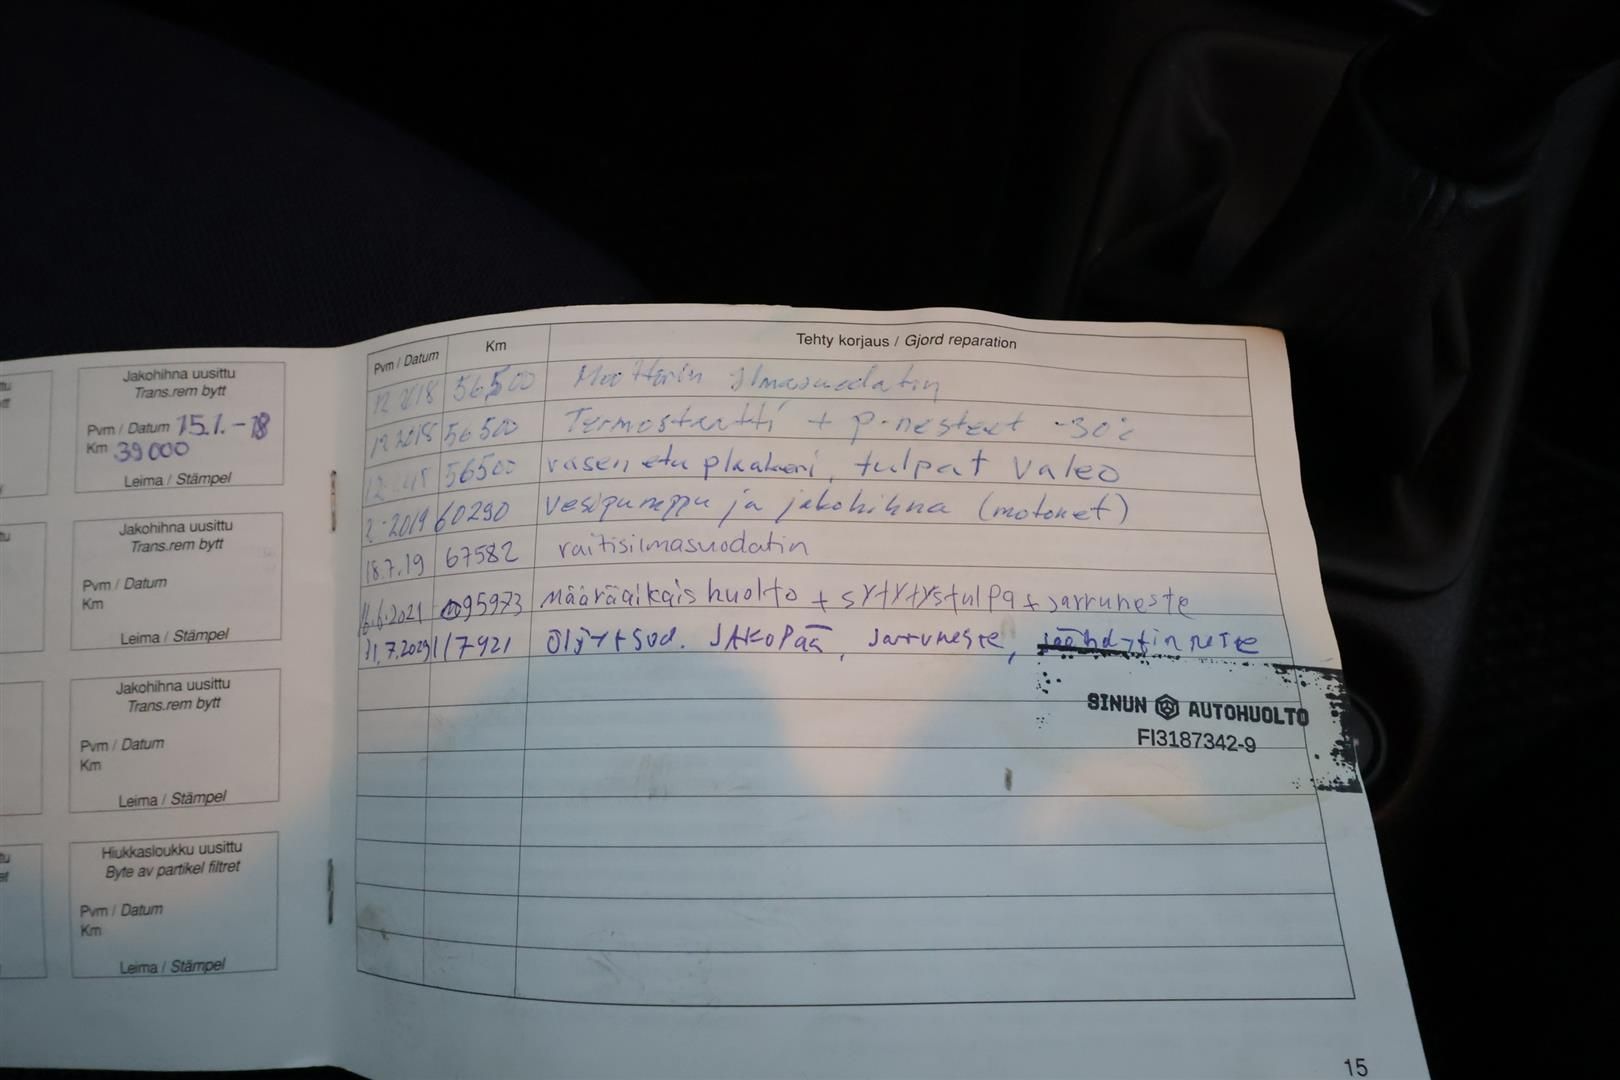 Jakohihna uusittu
Trans.rem bytt
Pvm / Datum 15.1.-18
Km 39000
Leima / Stämpel
Jakohihna uusittu
Trans.rem bytt
Pvm / Datum
Km
Leima / Stämpel
Jakohihna uusittu
Trans.rem bytt
Pvm / Datum
Km
Leima / Stämpel
Hiukkasloukku uusittu
Byte av partikel filtret
Pvm / Datum
Km
Leima / Stämpel
Pvm / Datum Km Tehty korjaus / Gjord reparation
12 2018 56500 Moottorin ilmasuodatin
12 2018 56500 Termostaatti + p-nesteet -30c
12 56500 vasen etu plaakeri, tulpat Valeo
2-2019 60290 Vesipumppu ja jakohihna (motonet)
18.7.19 67582 raitisilmasuodatin
16.6.2021 95973 määräaikais huolto + sytytystulpa + jarruneste
117921 Öljyt + suod. JAKOPää, Jarruneste, jäähdytinneste
SINUN AUTOHUOLTO
FI3187342-9
15